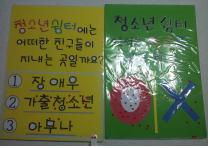 청소년쉼터에는
어떠한 친구들이
지내는 곳일까요?
① 장애우
② 가출청소년
③ 아무나
청소년 쉼터
O X